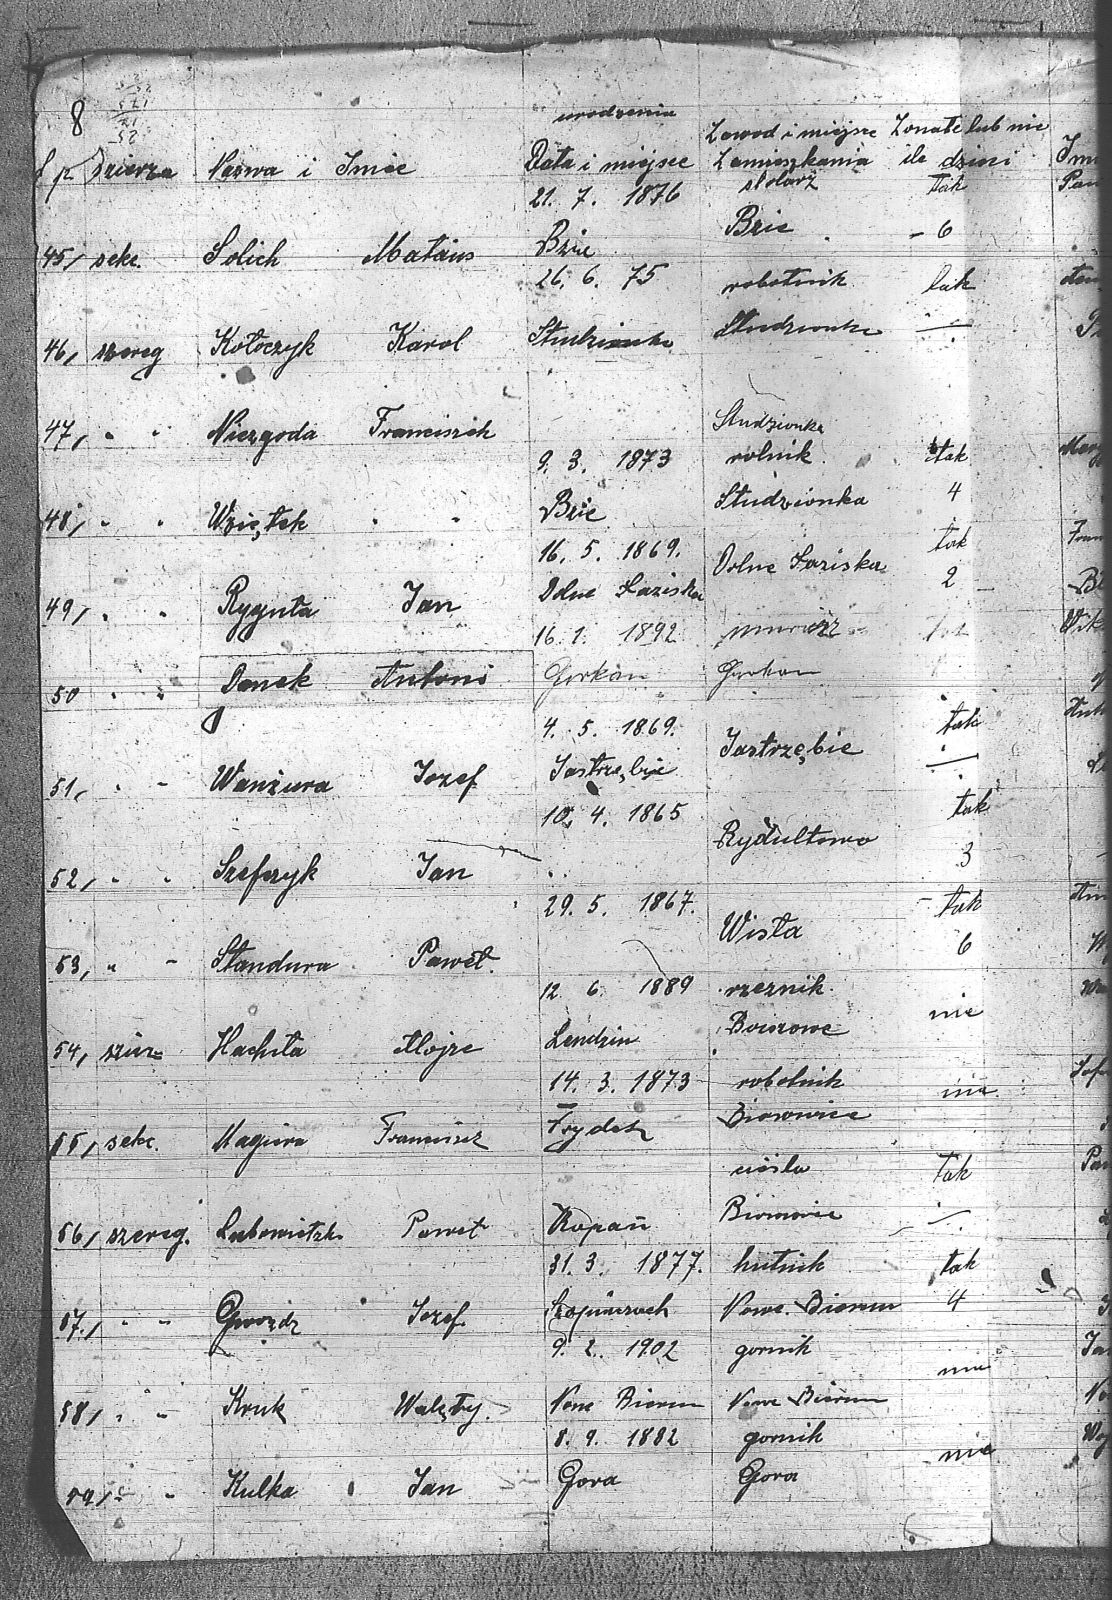 8
52
521
21
52
urodzenia
Zawod i miejsce Zonate lub nie
Lp Dzierza Nazwa i Imie Data i miejsce Zamieszkania ile dzieci
21. 7. 1876 stolarz tak
45, sekc. Solich Matäus Bzie Bzie 6
26. 6. 75 robotnik tak
46, szereg Kołoczyk Karol Studzionka Studzionka —
47, " " Niezgoda Franciszek Studzionka
9. 3. 1873 rolnik tak
48, " " Wziętek " " Bzie Studzionka 4
16. 5. 1869. tak
49, " " Rygula Jan Dolne Łaziska Dolne Łaziska 2
16. 1. 1892 murarz tak
50 " " Danek Antoni Gorkau Gorkau
4. 5. 1869. tak
51, " " Wanżura Jozef Jastrzębie Jastrzębie —
10. 4. 1865 tak
52, " " Szefczyk Jan Rydułtowo 3
29. 5. 1867. tak
53, " " Standura Paweł Wisła 6
12. 6. 1889 rzeznik
54, Hachuła Alojze Lendzin Boiszowe nie
14. 3. 1873 robotnik nie
55, sekc. Magiera Franciszek Frydek
ciesla tak
56, szereg. Paweł Kopań
31. 3. 1877. hutnik tak
57., " " Gwozdz Jozef Nowe Bierun 4
9. 2. 1902 gornik nie
58, " " Kruk Walęty. Nowe Bierun Nowe Bierun
8. 9. 1882 gornik nie
59, " " Kulka Jan Gora Gora